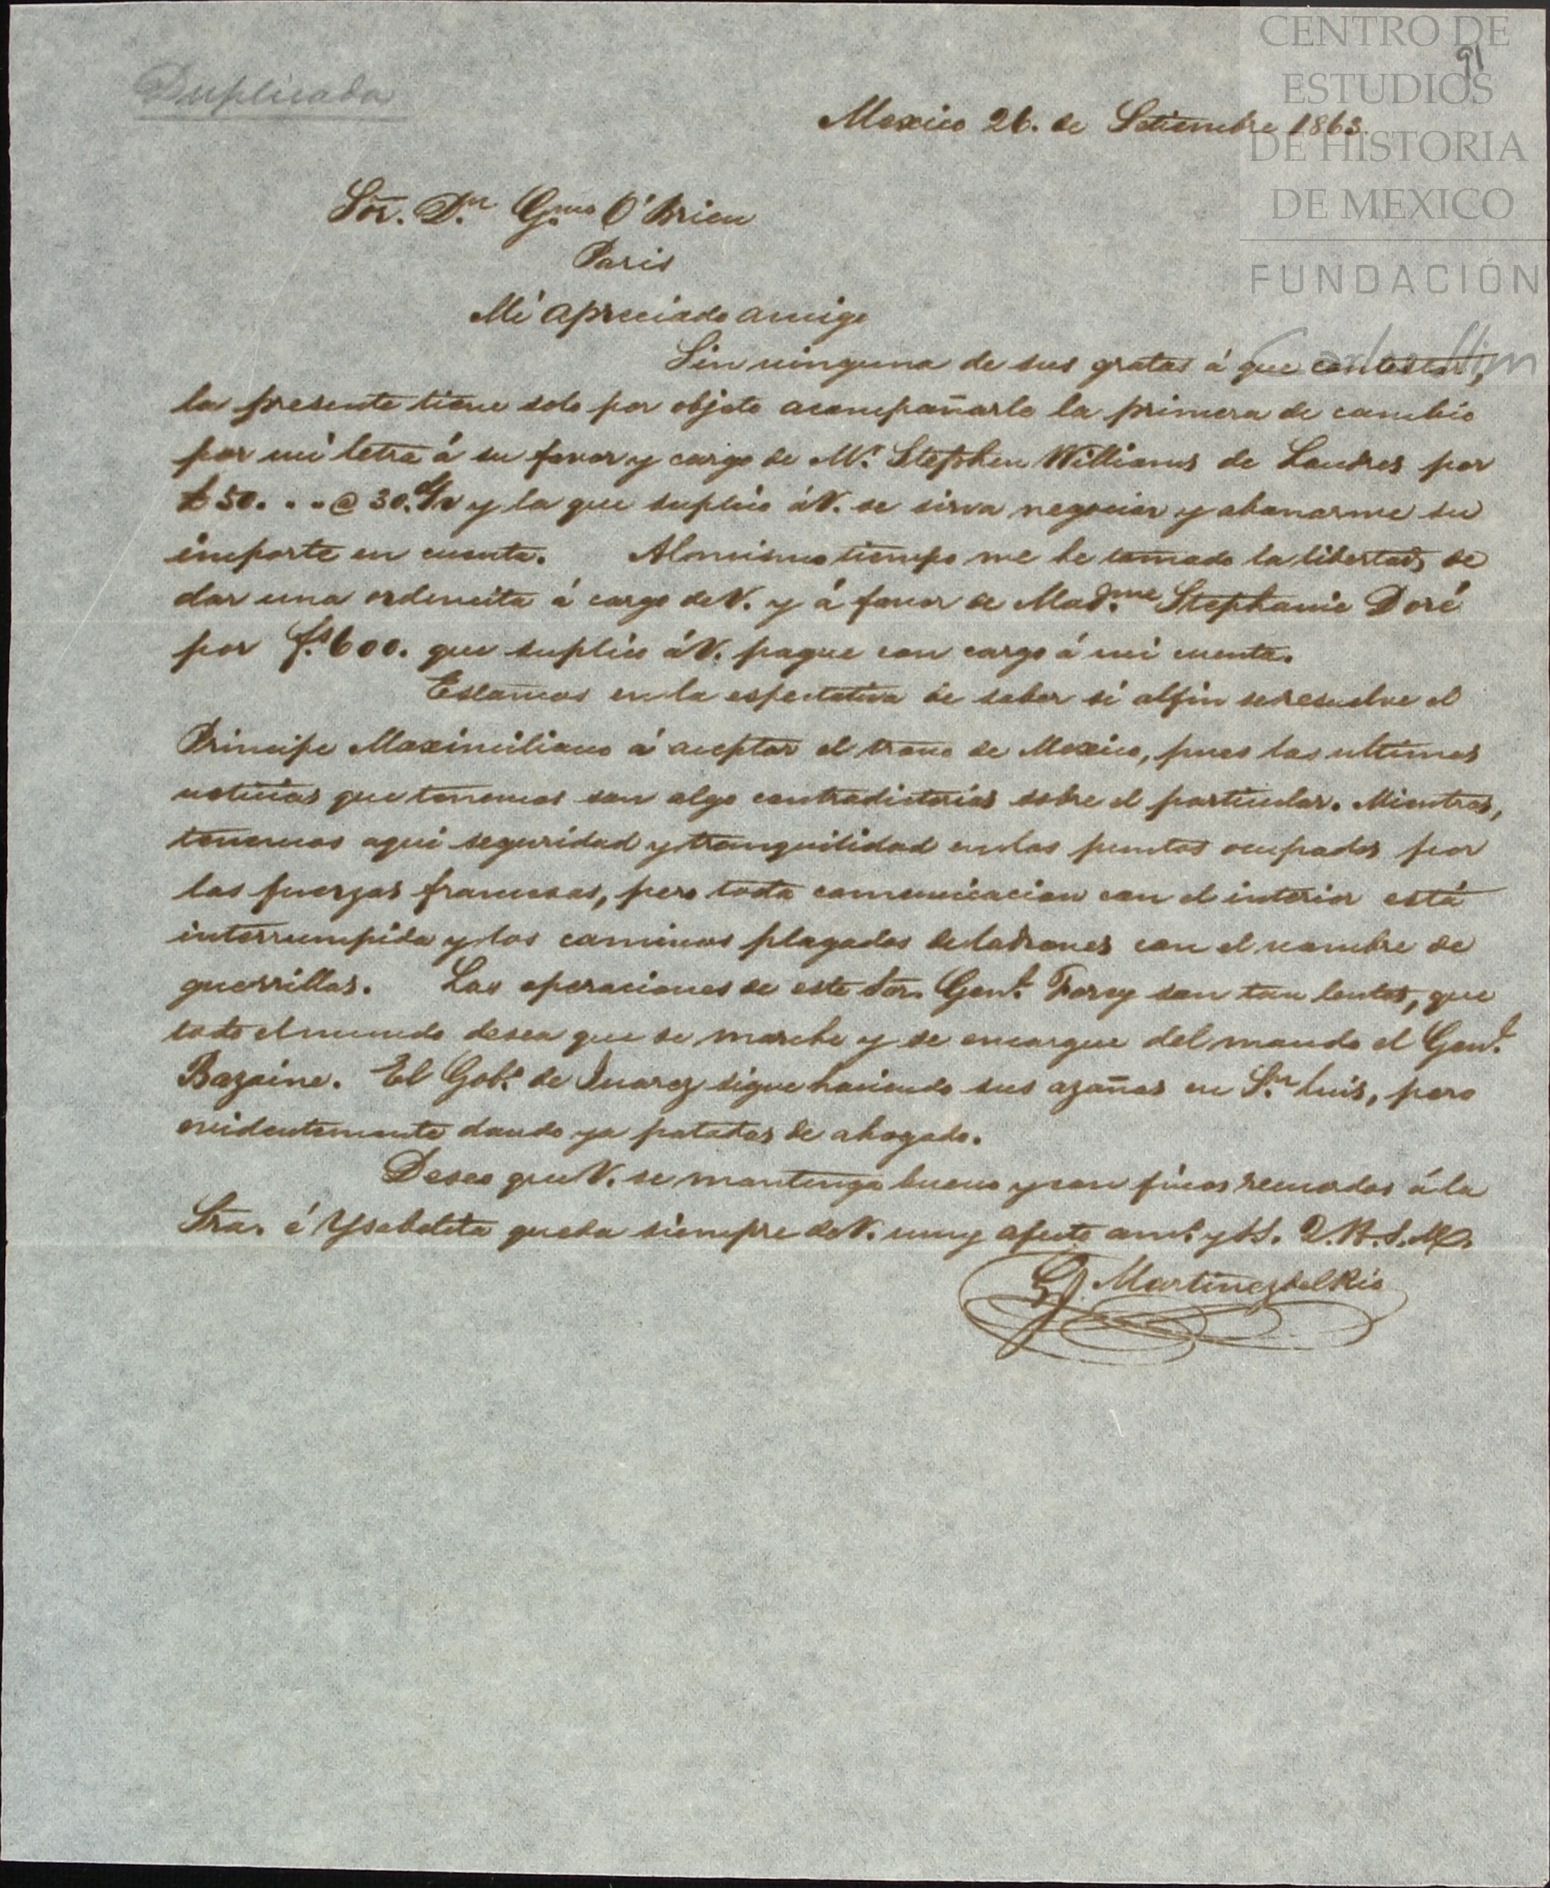 CENTRO DE
ESTUDIOS
DE HISTORIA
DE MEXICO
FUNDACIÓN
Carlos Slim
91
Duplicada
Mexico 26. de Setiembre 1863.
Sor. Dn. Gmo. O'Brien
Paris
Mi apreciado amigo
Sin ninguna de sus gratas á que contestar,
la presente tiene solo por objeto acompañarle la primera de cambio
por mi letra á su favor y cargo de Mr. Stephen Williams de Londres por
£50. . . @ 30. d/v y la que suplico á V. se sirva negociar y abonarme su
importe en cuenta. Al mismo tiempo me he tomado la libertad de
dar una ordencita á cargo de V. y á favor de Madme. Stephanie Doré
por fs. 600. que suplico á V. pague con cargo á mi cuenta.
Estamos en la espectativa de saber si al fin se resuelve el
Principe Maximiliano á aceptar el trono de Mexico, pues las ultimas
noticias que tenemos son algo contradictorias sobre el particular. Mientras,
tenemos aqui seguridad y tranquilidad en los puntos ocupados por
las fuerzas francesas, pero toda comunicacion con el interior está
interrumpida y los caminos plagados de ladrones con el nombre de
guerrillas. Las operaciones de este Sor. Genl. Forey son tan lentas, que
todo el mundo desea que se marche y se encargue del mando el Genl.
Bazaine. El Gobo. de Juarez sigue haciendo sus azañas en Sn. Luis, pero
evidentemente dando ya patadas de ahogado.
Deseo que V. se mantenga bueno y con finos recuerdos á la
Sra. é Ysabelita queda siempre de V. muy afecto amo. y S.S. Q.B.S.M.
G. Martinez del Rio